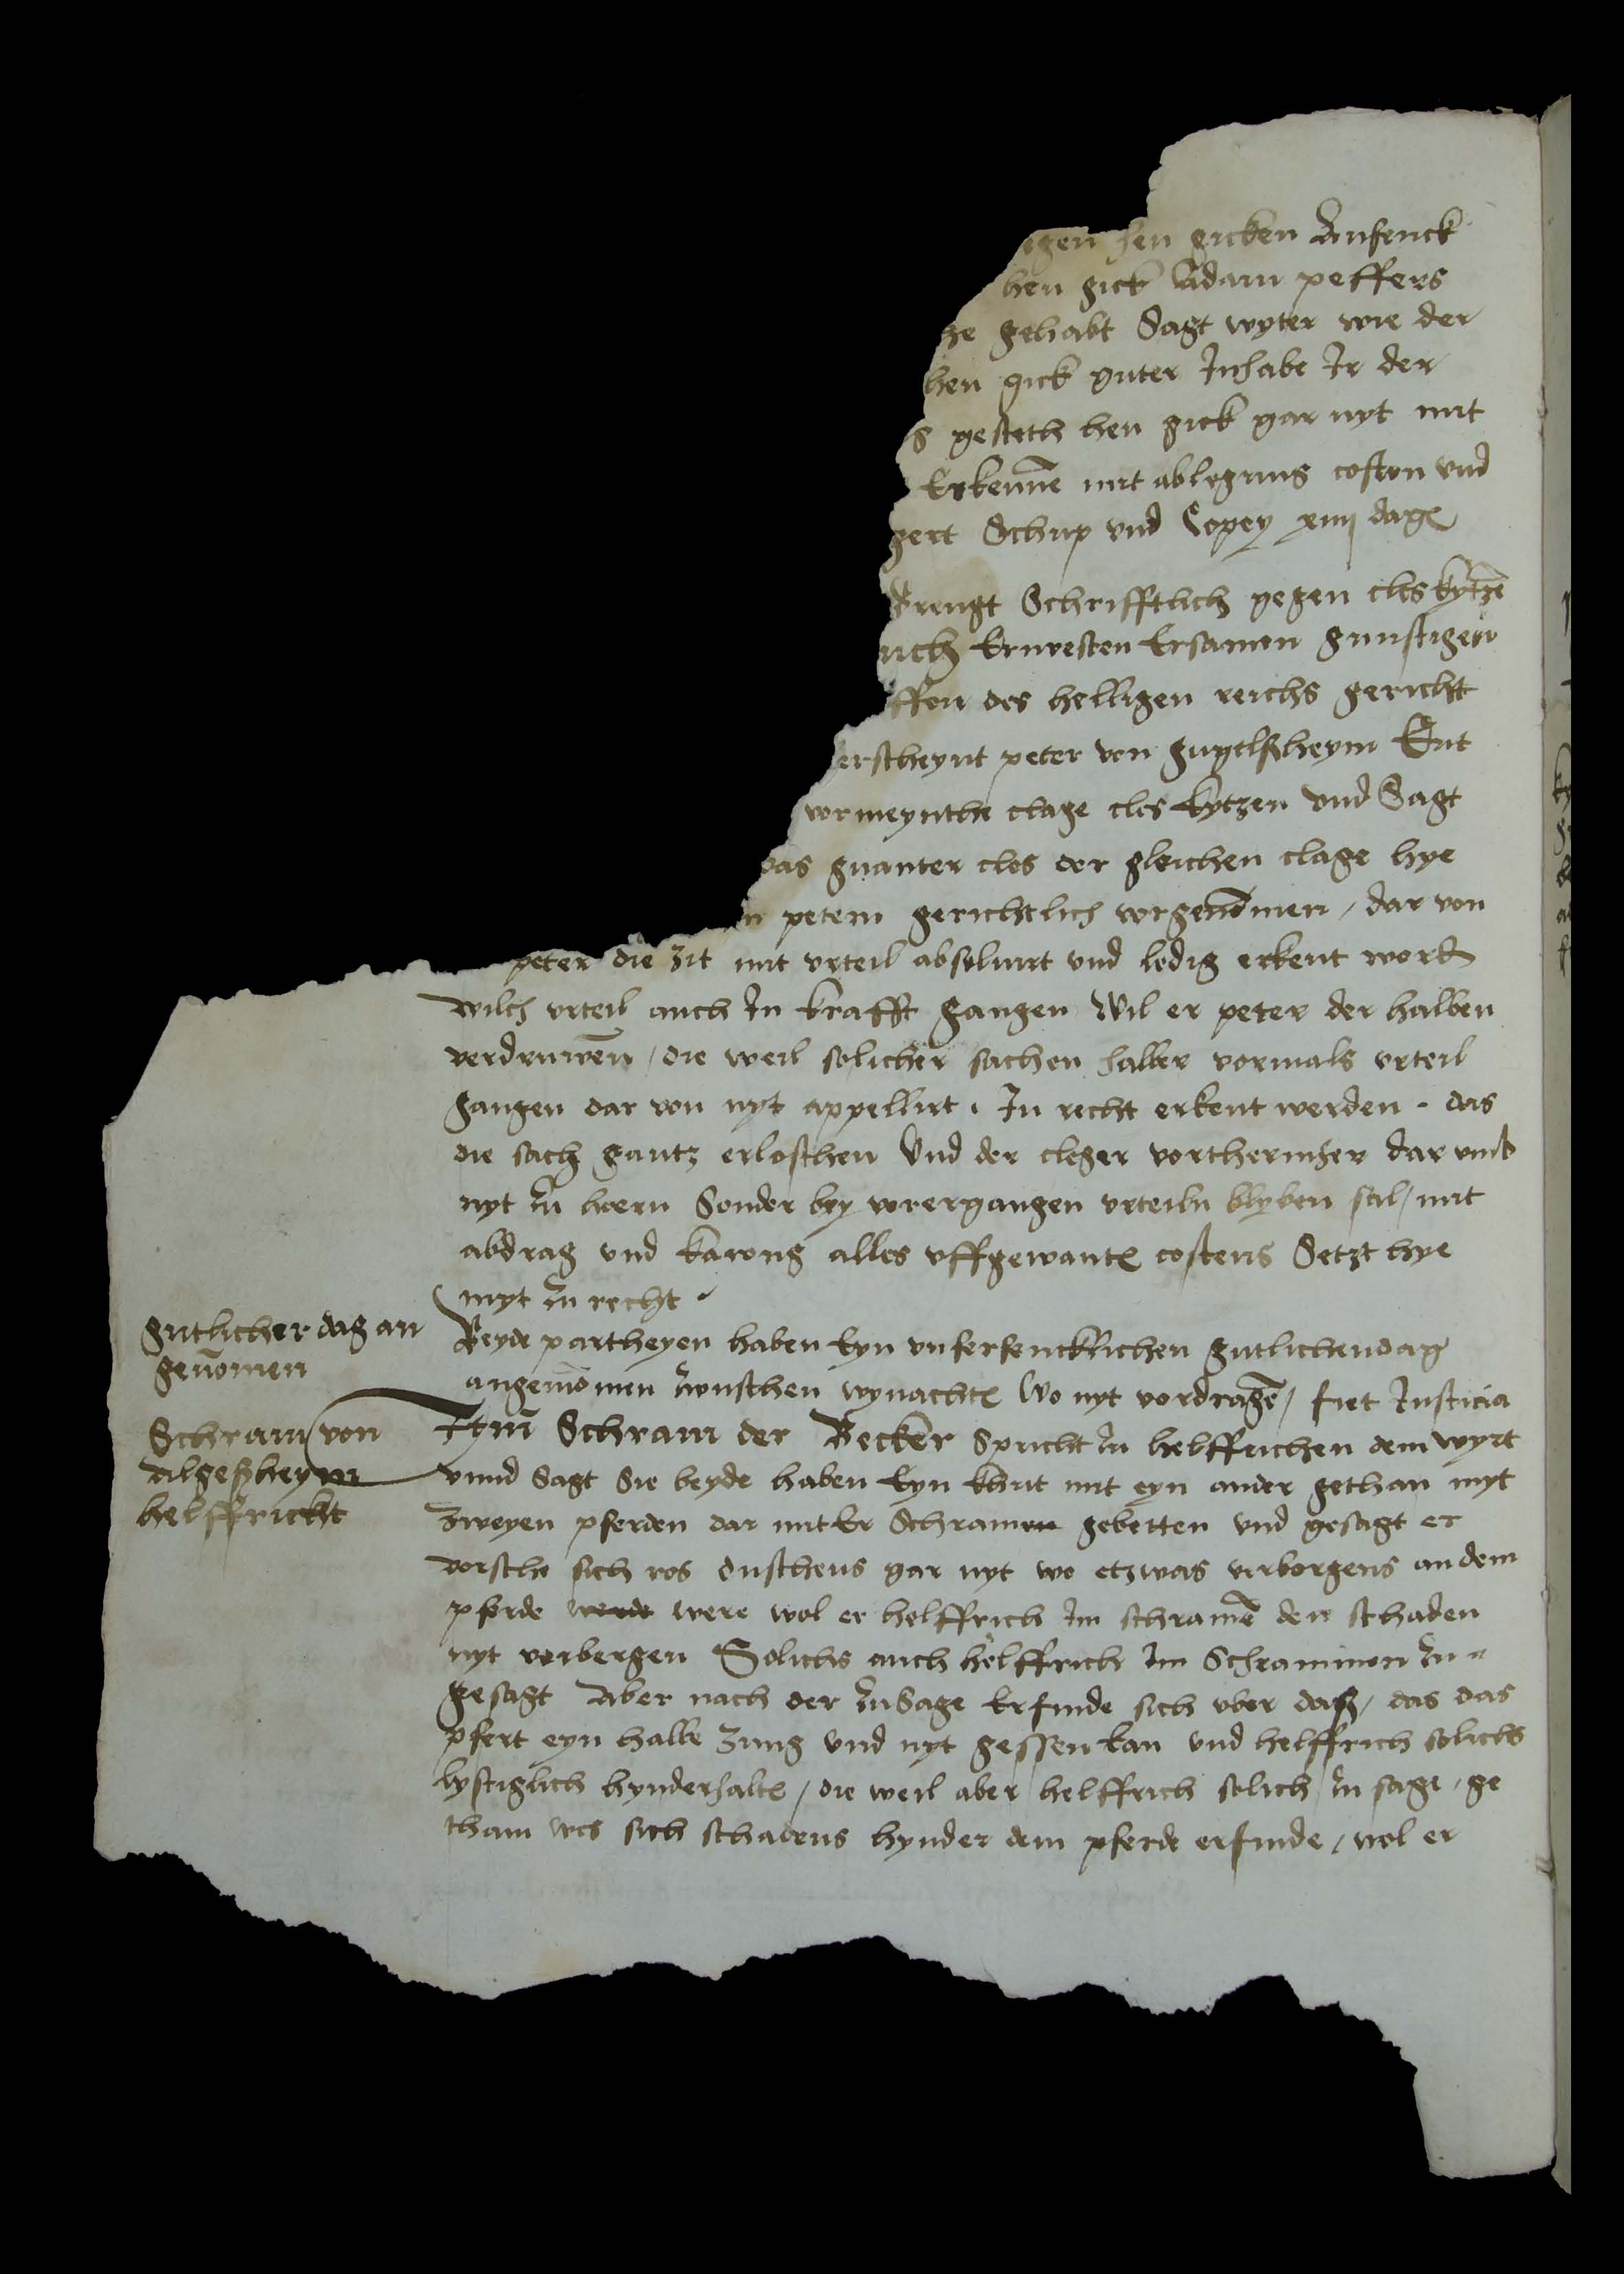 egen hen gicken Anfenck
hen gick Adam peffers
ge gehabt Sagt wyter wie der
hen gick guter Inhabe Ir der
s gesteth hen gick gar nyt mit
Erkenne mit ablegung costen vnd
gert Schup vnd Copey xiiij dage
Brengt Schrifftlich gegen cles kytze
uch Ernvesten Ersamen gunstigen
ffen des helligen reichs gericht
erscheynt peter von gugelßheym Ent
vormeynthe clage cles kytzen vnd Sagt
das gnanter cles der gleichen clage hye
n petern gerichtlich vorgenomen / dar von
peter die zit mit vrteil absolvirt vnd ledig erkent
wilch vrteil auch In krafft gangen Wil er peter der halben
verdruwen / die weil solicher sachen halber vormals vrteil
gangen dar von nyt appellirt / In recht erkent werden - das
die sach gantz erloschen Vnd der cleger vortherinher dar vmb
nyt zu horen Sonder bey vorergangen vrteiln blyben sal / mit
abdrag vnd karong alles vffgewante costens Setzt hye
myt zu recht
gutlicher dag an
genomen
Beyde partheyen haben Eyn vnferfencklichen gutlichen dag
angenomen zwuschen wynachte Wo nyt vordrage / fiet Justicia
Schram von
Algeßheym
helffricht
Itm Schram der Becker Spricht zu helffrichen dem wyrt
vnnd Sagt Sie beyde haben Eyn khut mit eyn ander gethan myt
zweyen pferden dar mit Er Schramen gebetten vnd gesagt er
vorsthe sich ros duschens gar nyt wo etzwas verborgens an dem
pferde werde were wol er helffrich Im schrame den schaden
nyt verbergen Solichs auch helffrich Im Schrammen zu
gesagt Aber nach der zu Sage Erfinde sich vber daß / das das
pfert eyn halbe zung vnd nyt gessen kan vnd helffrich solichs
lystiglich hynderhalte / die weil aber helffrich solich zu sage / ge
than wes sich schadens hynder dem pferde erfinde / wol er